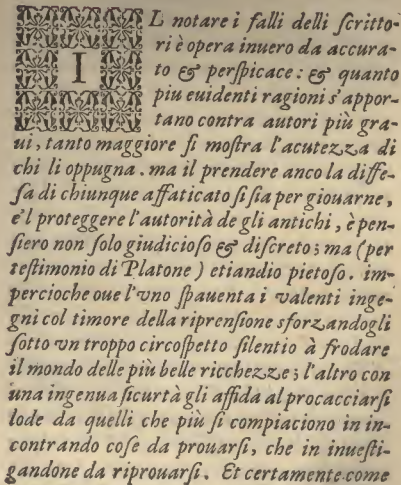 IL notare i falli delli ſcritto-
ri è opera inuero da accura-
to & perſpicace: & quanto
piu euidenti ragioni s'appor-
tano contra autori più gra-
ui, tanto maggiore ſi moſtra l'acutezza di
chi li oppugna. ma il prendere anco la diffe-
ſa di chiunque affaticato ſi ſia per giouarne,
e'l proteggere l'autorità de gli antichi, è pen-
ſiero non ſolo giudicioſo & diſcreto; ma (per
teſtimonio di Platone) etiandio pietoſo. im-
percioche oue l'vno ſpauenta i valenti inge-
gni col timore della riprenſione sforzandogli
ſotto vn troppo circoſpetto ſilentio à frodare
il mondo delle più belle ricchezze; l'altro con
una ingenua ſicurtà gli affida al procacciarſi
lode da quelli che più ſi compiaciono in in-
contrando coſe da prouarſi, che in inueſti-
gandone da riprouarſi. Et certamente come